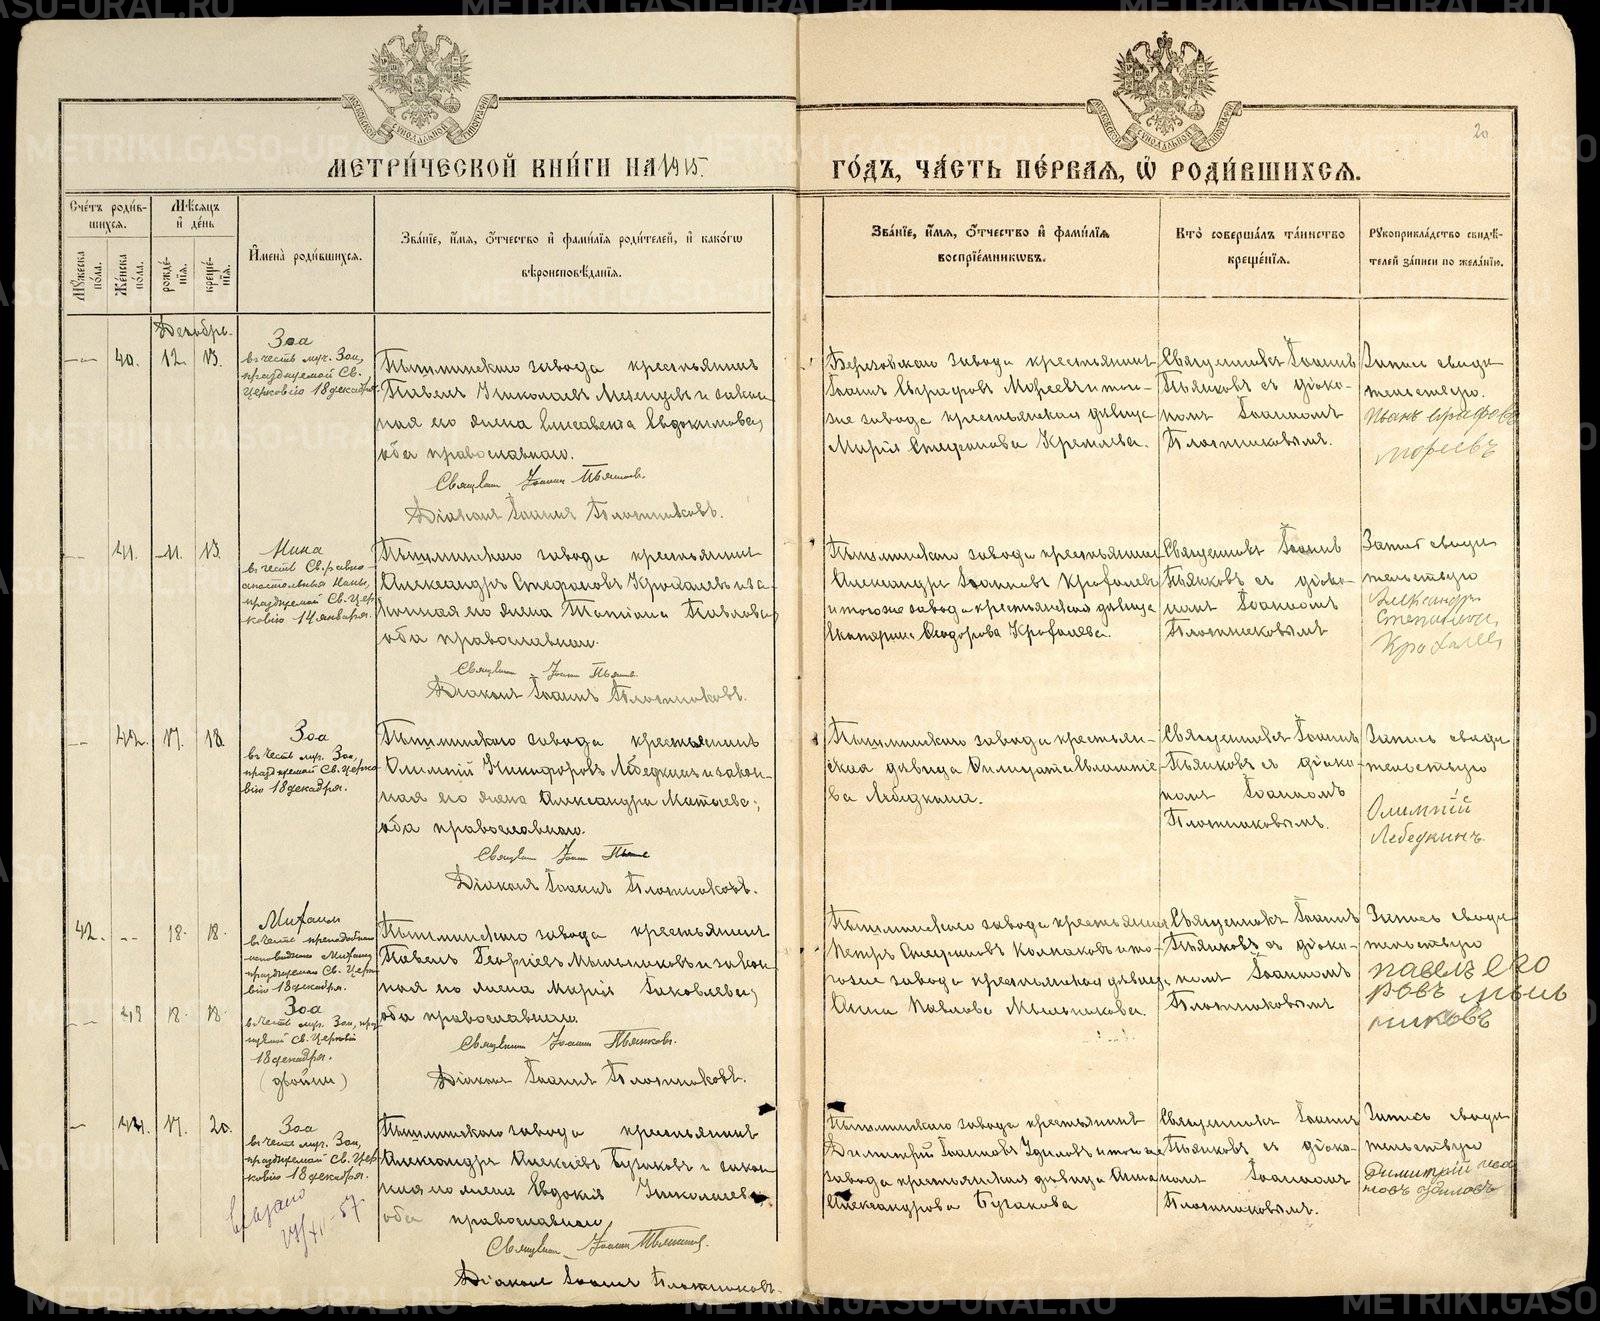 МЕТРИ́ЧЕСКОЙ КНИ́ГИ НА 1915.
ГО́ДЪ, ЧА́СТЬ ПЕ́РВАЯ, Ѡ҆ РОДИ́ВШИХСЯ.
20
Сче́тъ роди́в-
шихся.
Мꙋ́жеска по́ла.
Же́нска по́ла.
Мѣ́сяцъ и҆ де́нь
рожде́-
нїя.
креще́-
нїя.
И҆мена̀ роди́вшихся.
Зва́нїе, и҆́мя, ѻ҆́тчество и҆ фами́лїя роди́телей, и҆ како́гѡ
вѣроисповѣ́данїя.
Зва́нїе, и҆́мя, ѻ҆́тчество и҆ фами́лїя
воспрїе́мниковъ.
Кто̀ соверша́лъ та́инство
креще́нїя.
Рꙋкоприкла́дство свидѣ́-
телей за́писи по жела́нїю.
Декабрь.
40. 12. 13.
Зоа
въ честь муч. Зои,
празднуемой Св.
Церковію 18 декабря.
Пышминскаго завода крестьянинъ
Павелъ Николаевъ Мезенцевъ и закон-
ная его жена Елисавета Евдокимова,
оба православнаго.
Священ. Іоаннъ Пьянковъ.
Діаконъ Іоаннъ Плотниковъ.
Березовскаго завода крестьянинъ
Іоаннъ Евграфовъ Морѣевъ и того-
же завода крестьянская дѣвица
Марія Стефанова Кремлева.
Священникъ Іоаннъ
Пьянковъ съ діако-
номъ Іоанномъ
Плотниковымъ.
Запись свиде-
тельствую.
Иванъ Ефрафовъ
Морѣевъ
41. 11. 13.
Нина
въ честь Св. равно-
апостольныя Нины,
празднуемой Св. Цер-
ковію 14 января.
Пышминскаго завода крестьянинъ
Александръ Стефановъ Крофалевъ и за-
конная его жена Татіана Павлова,
оба православнаго.
Священ. Іоаннъ Пьянк.
Діаконъ Іоаннъ Плотниковъ.
Пышминскаго завода крестьянинъ
Александръ Іоанновъ Крофалевъ
и тогоже завода крестьянская дѣвица
Екатерина Ѳеодорова Крофалева.
Священникъ Іоаннъ
Пьянковъ съ діако-
номъ Іоанномъ
Плотниковымъ
Запись свиде-
тельствую
Александръ
Степановъ
Крофалев
42. 17. 18.
Зоа
въ честь муч. Зои,
празднуемой Св. Церко-
вію 18 декабря.
Пышминскаго завода крестьянинъ
Олимпій Никифоровъ Лебедкинъ и закон-
ная его жена Александра Матѳеева,
оба православнаго.
Священ. Іоаннъ Пьянк.
Діаконъ Іоаннъ Плотниковъ.
Пышминскаго завода крестьян-
ская дѣвица
Лебедкина.
Священникъ Іоаннъ
Пьянковъ съ діако-
номъ Іоанномъ
Плотниковымъ.
Запись свиде-
тельствую
Олимпій
Лебедкинъ
42. 18. 18.
Михаилъ
въ честь преподобнаго
исповѣдника Михаила
празднуемаго Св. Церко-
вію 18 декабря.
Пышминскаго завода крестьянинъ
Павелъ Георгіевъ Мыльниковъ и закон-
ная его жена Марія Іаковлева,
оба православнаго.
Священникъ Іоаннъ Пьянковъ.
Діаконъ Іоаннъ Плотниковъ.
43 18. 18.
Зоа
въ честь муч. Зои, праз-
нуемой Св. Церковію
18 декабря.
(двойни)
Пышминскаго завода крестьянинъ
Петръ Колмаковъ и то-
гоже завода крестьянская дѣвица
Анна Павлова Мыльникова.
Священникъ Іоаннъ
Пьянковъ съ діако-
номъ Іоанномъ
Плотниковымъ
Запись свиде-
тельствую
Павелъ Его
ровъ Мыль
никовъ
44. 17. 20.
Зоа
въ честь муч. Зои,
празднуемой Св. Цер-
ковію 18 декабря.
Пышминскаго завода крестьянинъ
Александръ Алексіевъ Бузаковъ и закон-
ная его жена Евдокія Николаева
оба православнаго
Священ. Іоаннъ Пьянковъ.
Діаконъ Іоаннъ Плотниковъ.
Пышминскаго завода крестьянинъ
Димитрій Іоанновъ Удиловъ и тогоже
завода крестьянская дѣвица Анна
Александрова Бузакова
Священникъ Іоаннъ
Пьянковъ съ діако-
номъ Іоанномъ
Плотниковымъ.
Запись свиде-
тельствую
Димитрій Ива
новъ Удиловъ
METRIKI.GASO-URAL.RU